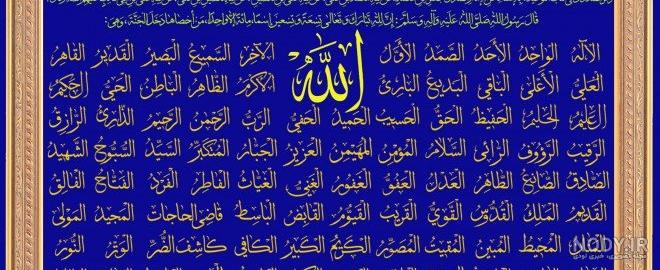 قَالَ رَسُولُ اللهِ صَلَّى اللهُ عَلَيْهِ وَآلِهِ وَسَلَّمَ: إِنَّ لِلّٰهِ تَبَارَكَ وَتَعَالَى تِسْعَةً وَتِسْعِينَ اسْمًا مِائَةً إِلَّا وَاحِدًا، مَنْ أَحْصَاهَا دَخَلَ الْجَنَّةَ، وَهِيَ:
الإِلَهُ الْوَاحِدُ الأَحَدُ الصَّمَدُ الأَوَّلُ اللهُ الآخِرُ السَّمِيعُ الْبَصِيرُ الْقَدِيرُ الْقَاهِرُ
الْعَلِيُّ الأَعْلَى الْبَاقِي الْبَدِيعُ الْبَارِئُ الأَكْرَمُ الظَّاهِرُ الْبَاطِنُ الْحَيُّ الْحَكِيمُ
الْعَلِيمُ الْحَلِيمُ الْحَفِيظُ الْحَقُّ الْحَسِيبُ الْحَمِيدُ الْحَفِيُّ الرَّبُّ الرَّحْمٰنُ الرَّحِيمُ الذَّارِئُ الرَّازِقُ
الرَّقِيبُ الرَّؤُوفُ الرَّائِي السَّلَامُ الْمُؤْمِنُ الْمُهَيْمِنُ الْعَزِيزُ الْجَبَّارُ الْمُتَكَبِّرُ السَّيِّدُ السُّبُّوحُ الشَّهِيدُ
الصَّادِقُ الصَّانِعُ الطَّاهِرُ الْعَدْلُ الْعَفُوُّ الْغَفُورُ الْغَنِيُّ الْغِيَاثُ الْفَاطِرُ الْفَرْدُ الْفَتَّاحُ الْفَالِقُ
الْقَدِيمُ الْمَلِكُ الْقُدُّوسُ الْقَوِيُّ الْقَرِيبُ الْقَيُّومُ الْقَابِضُ الْبَاسِطُ قَاضِيَ الْحَاجَاتِ الْمَجِيدُ الْمَوْلَى
الْمَنَّانُ الْمُحِيطُ الْمُبِينُ الْمُقِيتُ الْمُصَوِّرُ الْكَرِيمُ الْكَبِيرُ الْكَافِي كَاشِفُ الضُّرِّ الْوِتْرُ النُّورُ
NODY.IR
مجله تصویری، خبری نودی